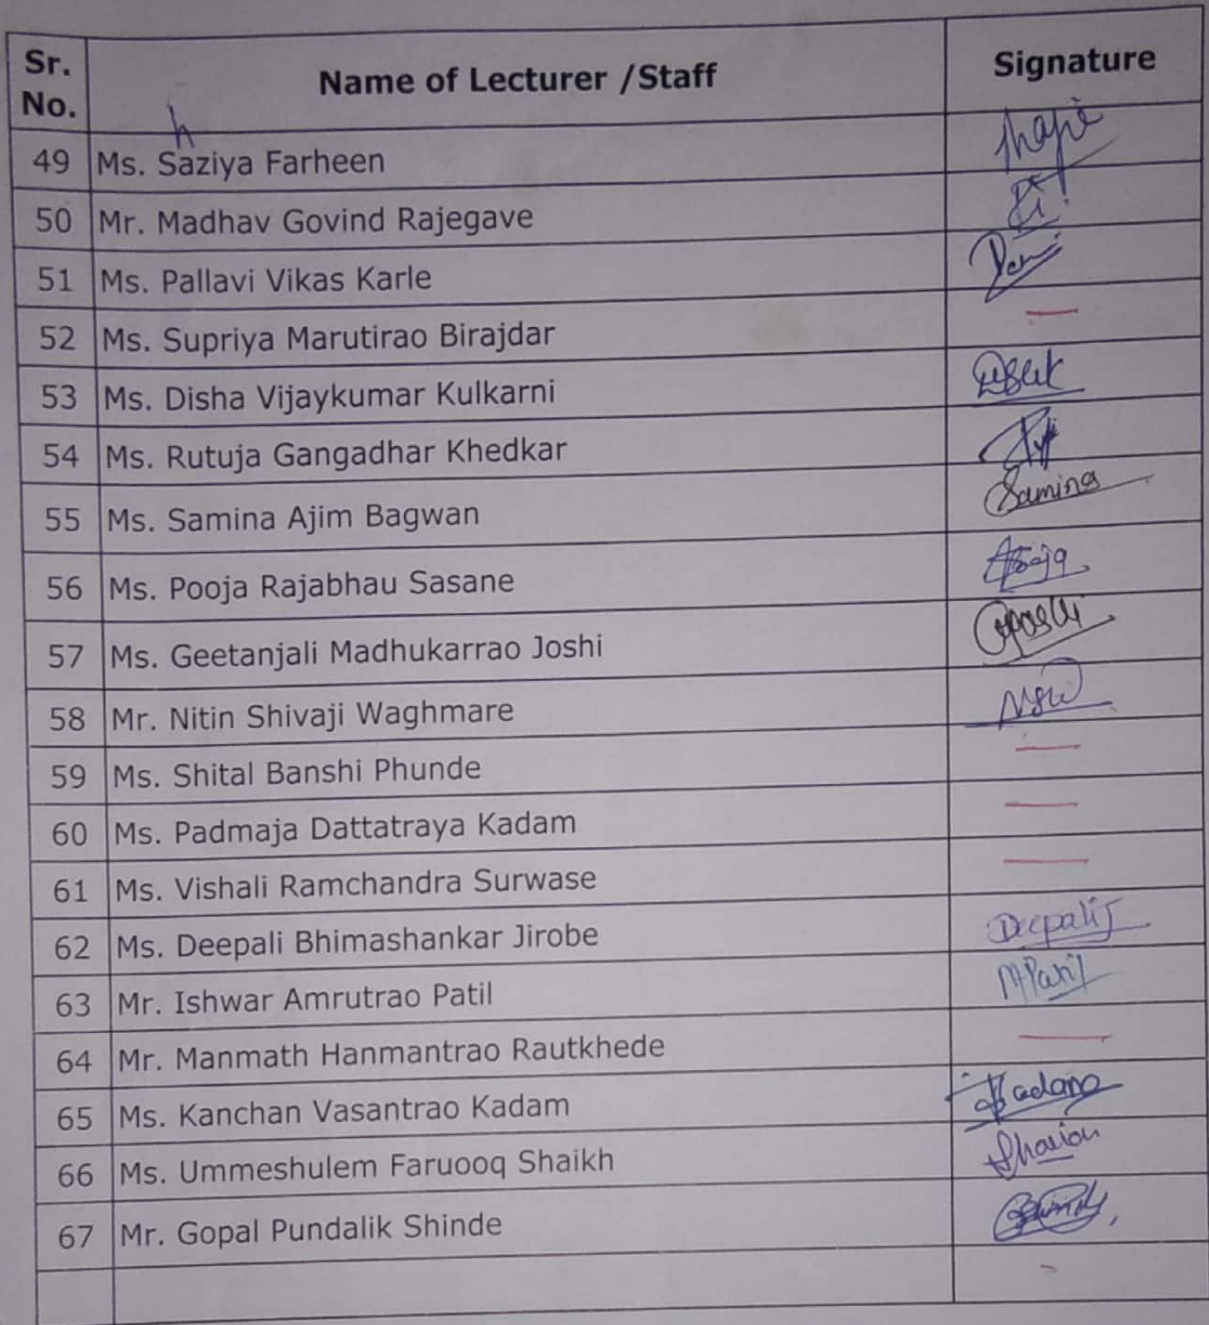 Sr. No. Name of Lecturer /Staff Signature
h
49 Ms. Saziya Farheen
50 Mr. Madhav Govind Rajegave
51 Ms. Pallavi Vikas Karle
52 Ms. Supriya Marutirao Birajdar —
53 Ms. Disha Vijaykumar Kulkarni
54 Ms. Rutuja Gangadhar Khedkar
55 Ms. Samina Ajim Bagwan Samina
56 Ms. Pooja Rajabhau Sasane
57 Ms. Geetanjali Madhukarrao Joshi
58 Mr. Nitin Shivaji Waghmare
59 Ms. Shital Banshi Phunde —
60 Ms. Padmaja Dattatraya Kadam —
61 Ms. Vishali Ramchandra Surwase —
62 Ms. Deepali Bhimashankar Jirobe DeepaliJ
63 Mr. Ishwar Amrutrao Patil
64 Mr. Manmath Hanmantrao Rautkhede —
65 Ms. Kanchan Vasantrao Kadam
66 Ms. Ummeshulem Faruooq Shaikh
67 Mr. Gopal Pundalik Shinde